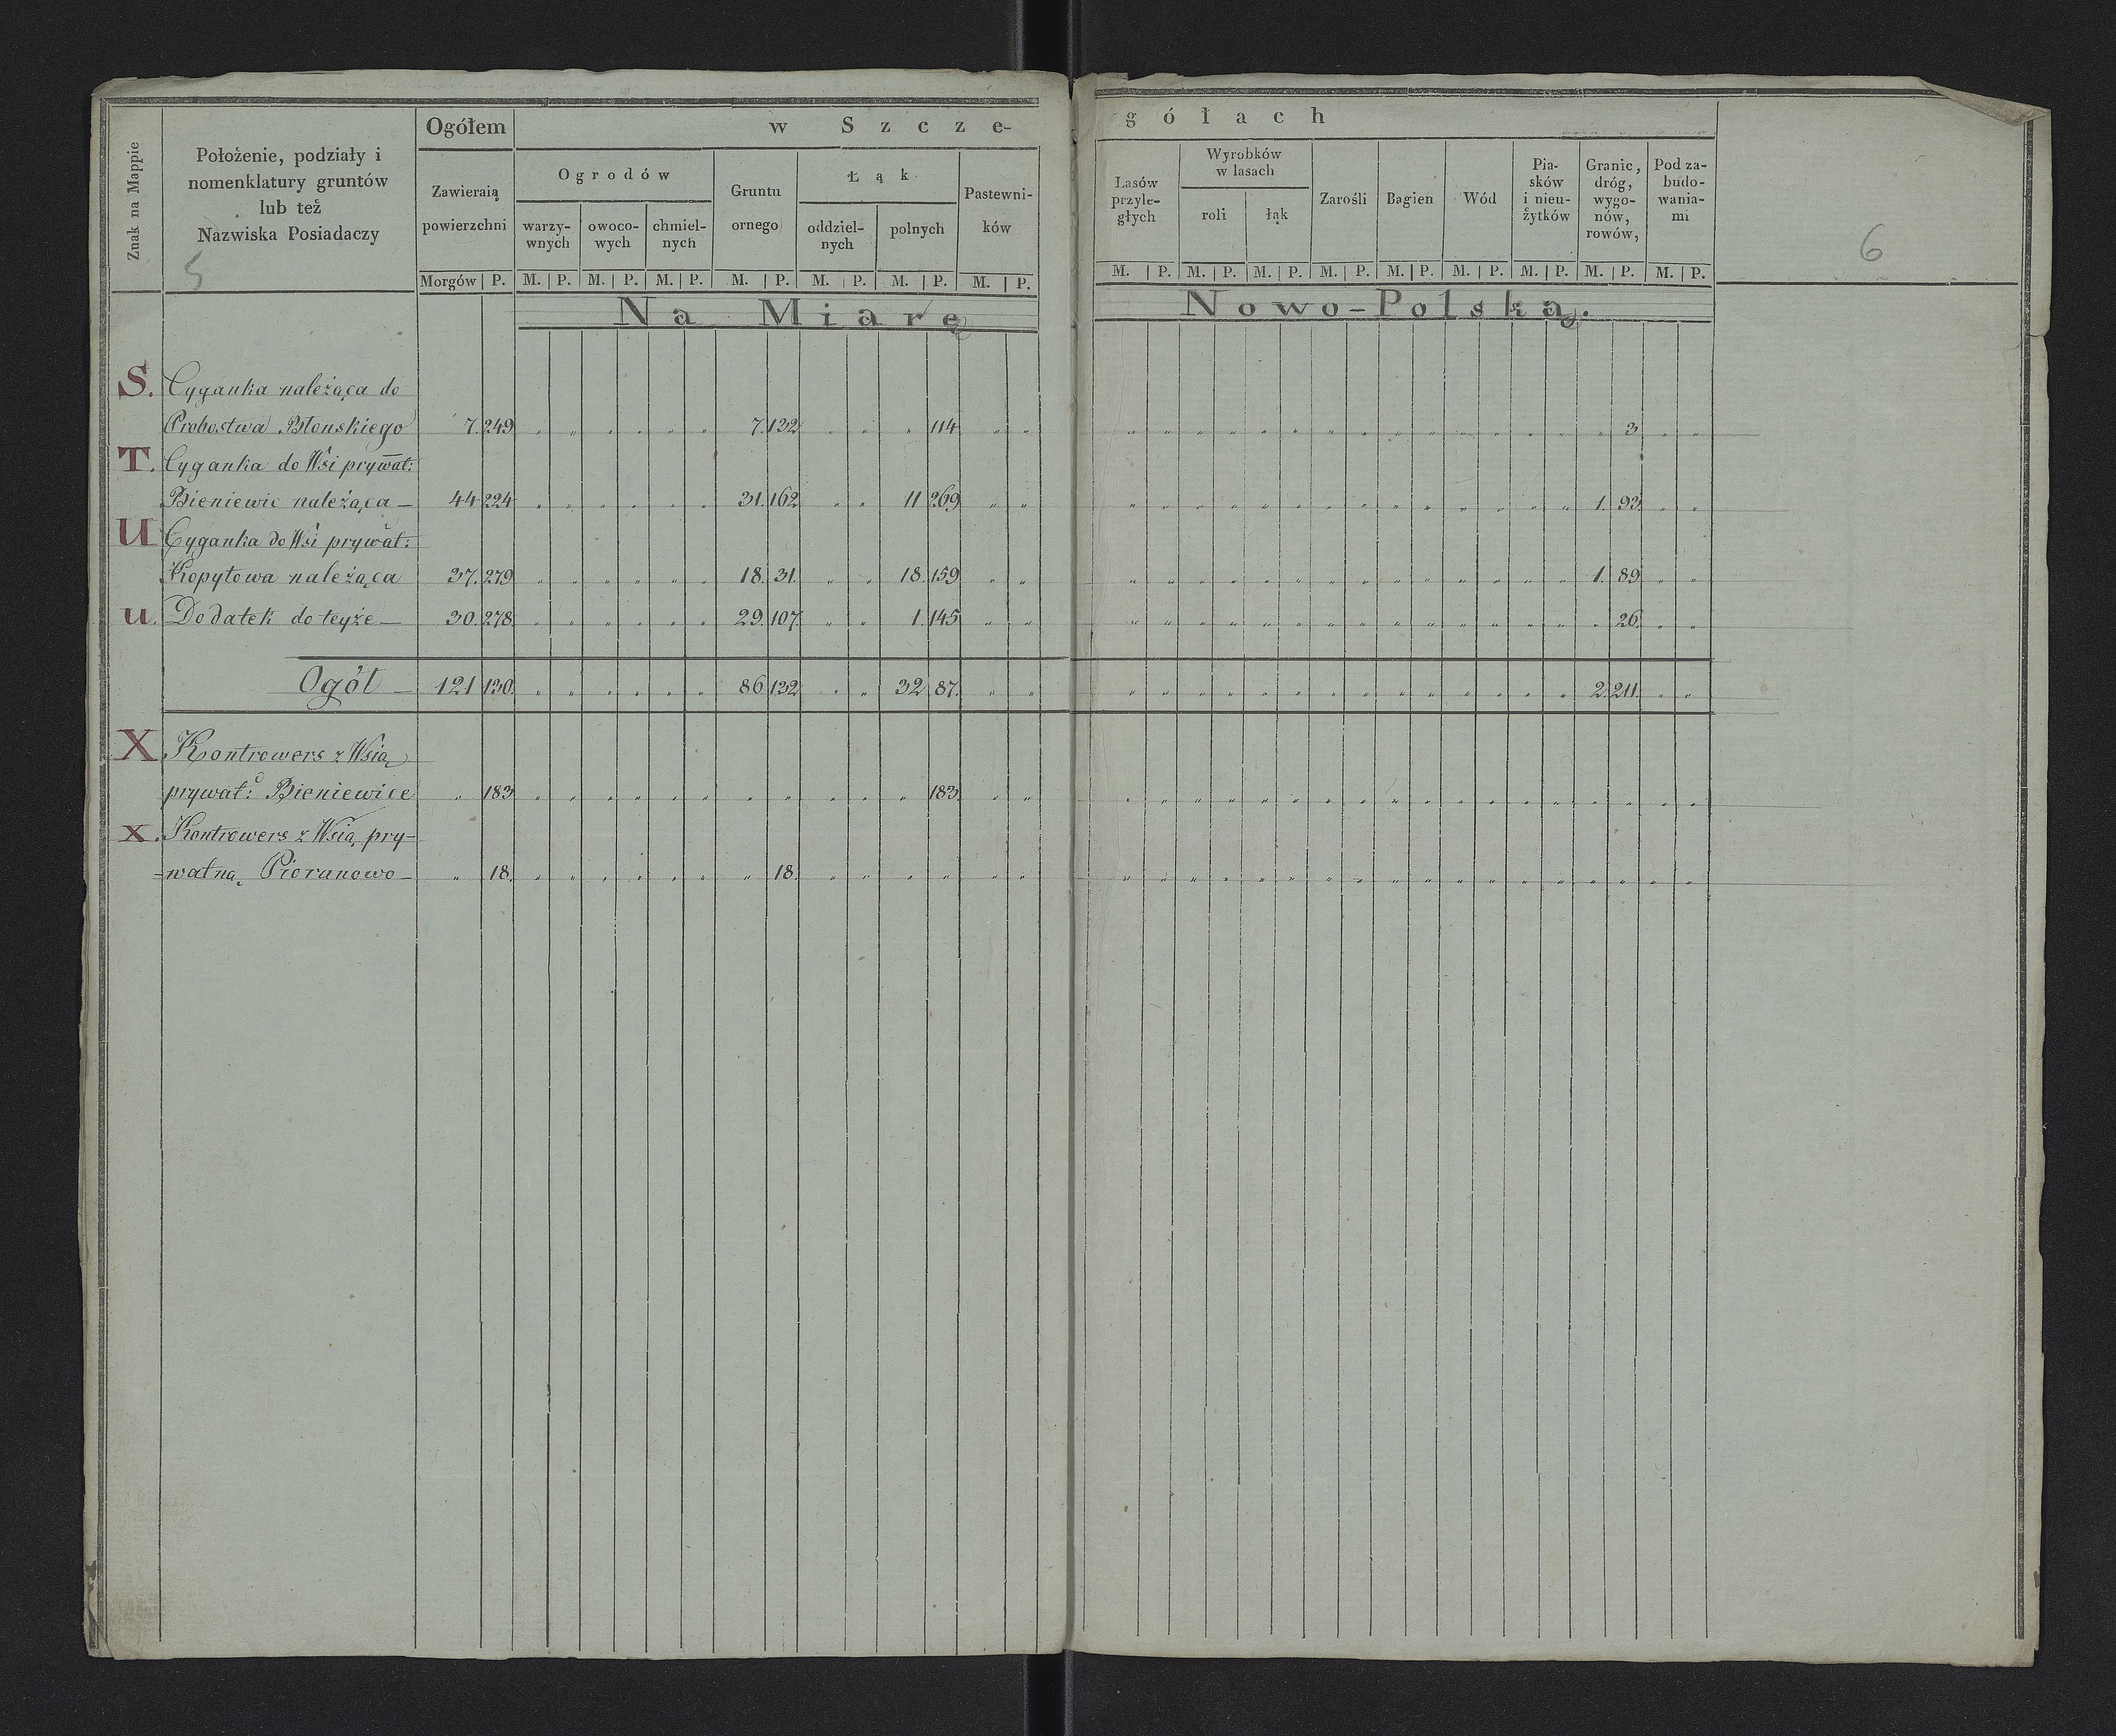 Znak na Mappie
Położenie, podziały i
nomenklatury gruntów
lub też
Nazwiska Posiadaczy
5
Ogółem
Zawieraią
powierzchni
Morgów P.
w Szcze-
Ogrodów
warzy-
wnych
M. P.
owoco-
wych
M. P.
chmiel-
nych
M. P.
Gruntu
ornego
M. P.
Łąk
oddziel-
nych
M. P.
polnych
M. P.
Pastewni-
ków
M. P.
gółach
Lasów
przyle-
głych
M. P.
Wyrobków
w lasach
roli
M. P.
łąk
M. P.
Zarośli
M. P.
Bagien
M. P.
Wód
M. P.
Pia-
sków
i nieu-
żytków
M. P.
Granic,
dróg,
wygo-
nów,
rowów,
M. P.
Pod za-
budo-
wania-
mi
M. P.
6
Na Miarę Nowo-Polską.
S. Cyganka należąca do
Probostwa Błonskiego 7. 249 7. 132 114 3
T. Cyganka do Wsi prywat:
Bieniewic należąca — 44 224 31. 162 11 269 1. 93.
U Cyganka do Wsi prywat:
Kopytowa należąca 37. 279 18. 31. 18. 159 1. 89
u. Dodatek do teyże — 30. 278 29. 107 1. 145 26.
Ogół — 121 130. 86 132 32 87. 2. 211.
X Kontrowers z Wsią
prywat: Bieniewice 183 183.
x. Kontrowers z Wsią pry-
-watną Pioranowo — 18. 18.